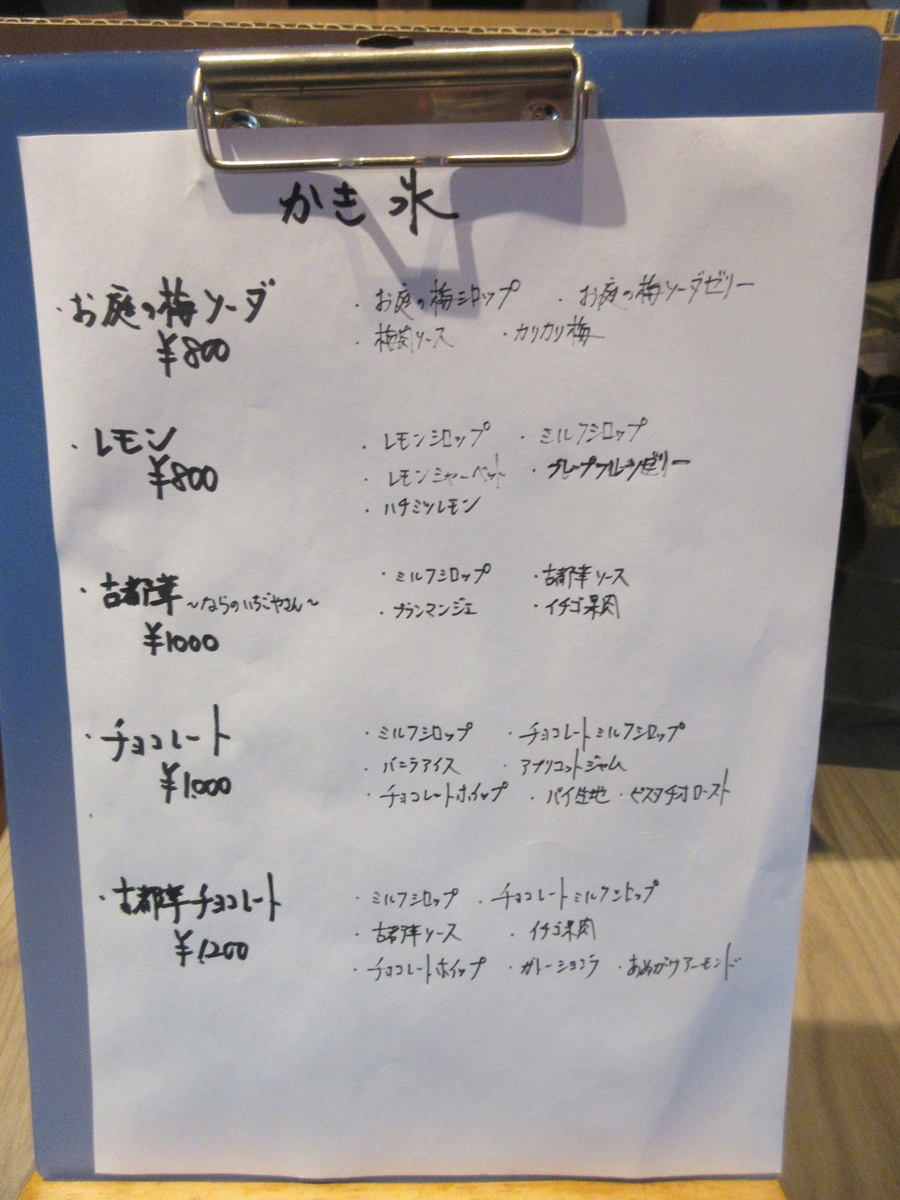 かき氷
・お庭の梅ソーダ
¥800
・お庭の梅シロップ ・お庭の梅ソーダゼリー
・梅肉ソース ・カリカリ梅
・レモン
¥800
・レモンシロップ ・ミルクシロップ
・レモンシャーベット ・グレープフルーツゼリー
・ハチミツレモン
・古都華 ～ならのいちごやさん～
¥1000
・ミルクシロップ ・古都華ソース
・ブランマンジェ ・イチゴ果肉
・チョコレート
¥1000
・ミルクシロップ ・チョコレートミルクシロップ
・バニラアイス ・アプリコットジャム
・チョコレートホイップ ・パイ生地 ・ピスタチオロースト
・古都華チョコレート
¥1,200
・ミルクシロップ ・チョコレートミルクシロップ
・古都華ソース ・イチゴ果肉
・チョコレートホイップ ・ガトーショコラ ・あめがけアーモンド